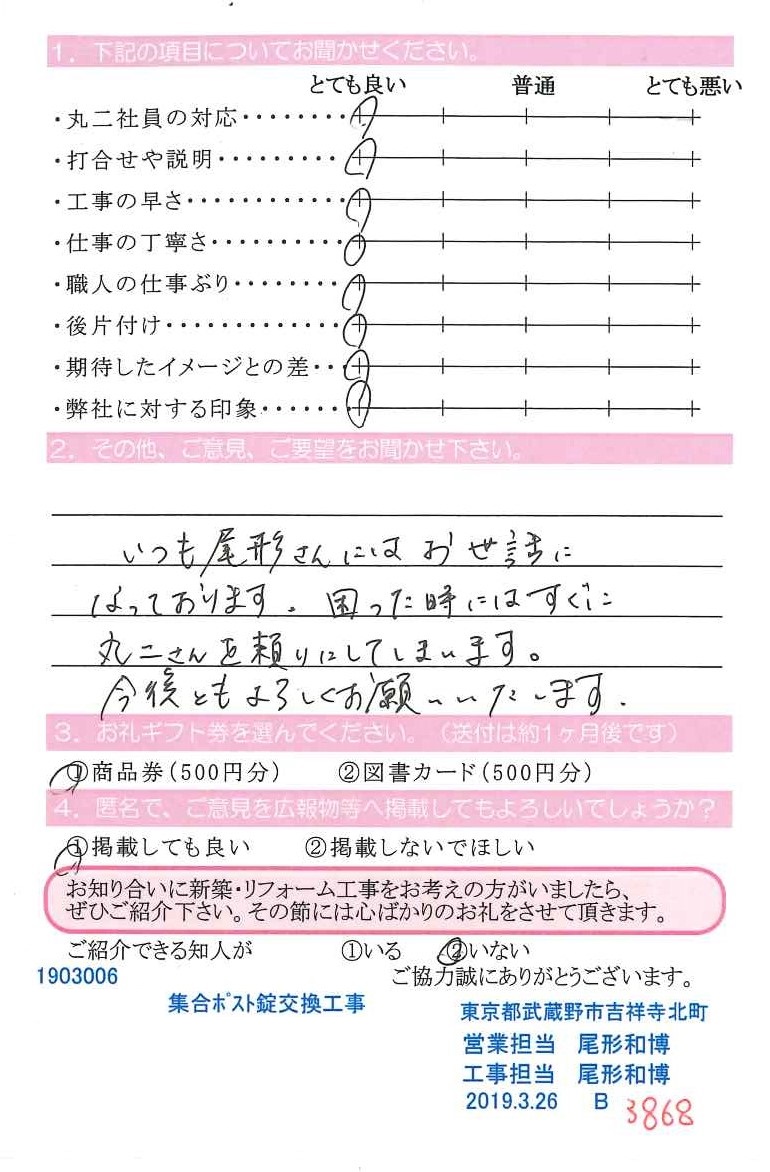 1．下記の項目についてお聞かせください。
とても良い 普通 とても悪い
・丸二社員の対応・・・・・・・・
・打合せや説明・・・・・・・・・
・工事の早さ・・・・・・・・・・・・
・仕事の丁寧さ・・・・・・・・・・
・職人の仕事ぶり・・・・・・・・
・後片付け・・・・・・・・・・・・・
・期待したイメージとの差・・・
・弊社に対する印象・・・・・・
2．その他、ご意見、ご要望をお聞かせ下さい。
いつも尾形さんにはお世話に
なっております。困った時にはすぐに
丸二さんを頼りにしてしまいます。
今後ともよろしくお願いいたします。
3．お礼ギフト券を選んでください。（送付は約1ヶ月後です）
①商品券（500円分） ②図書カード（500円分）
4．匿名で、ご意見を広報物等へ掲載してもよろしいでしょうか？
①掲載しても良い ②掲載しないでほしい
お知り合いに新築・リフォーム工事をお考えの方がいましたら、
ぜひご紹介下さい。その節には心ばかりのお礼をさせて頂きます。
ご紹介できる知人が ①いる ②いない
1903006 ご協力誠にありがとうございます。
集合ﾎﾟｽﾄ錠交換工事 東京都武蔵野市吉祥寺北町
営業担当 尾形和博
工事担当 尾形和博
2019.3.26 B 3868